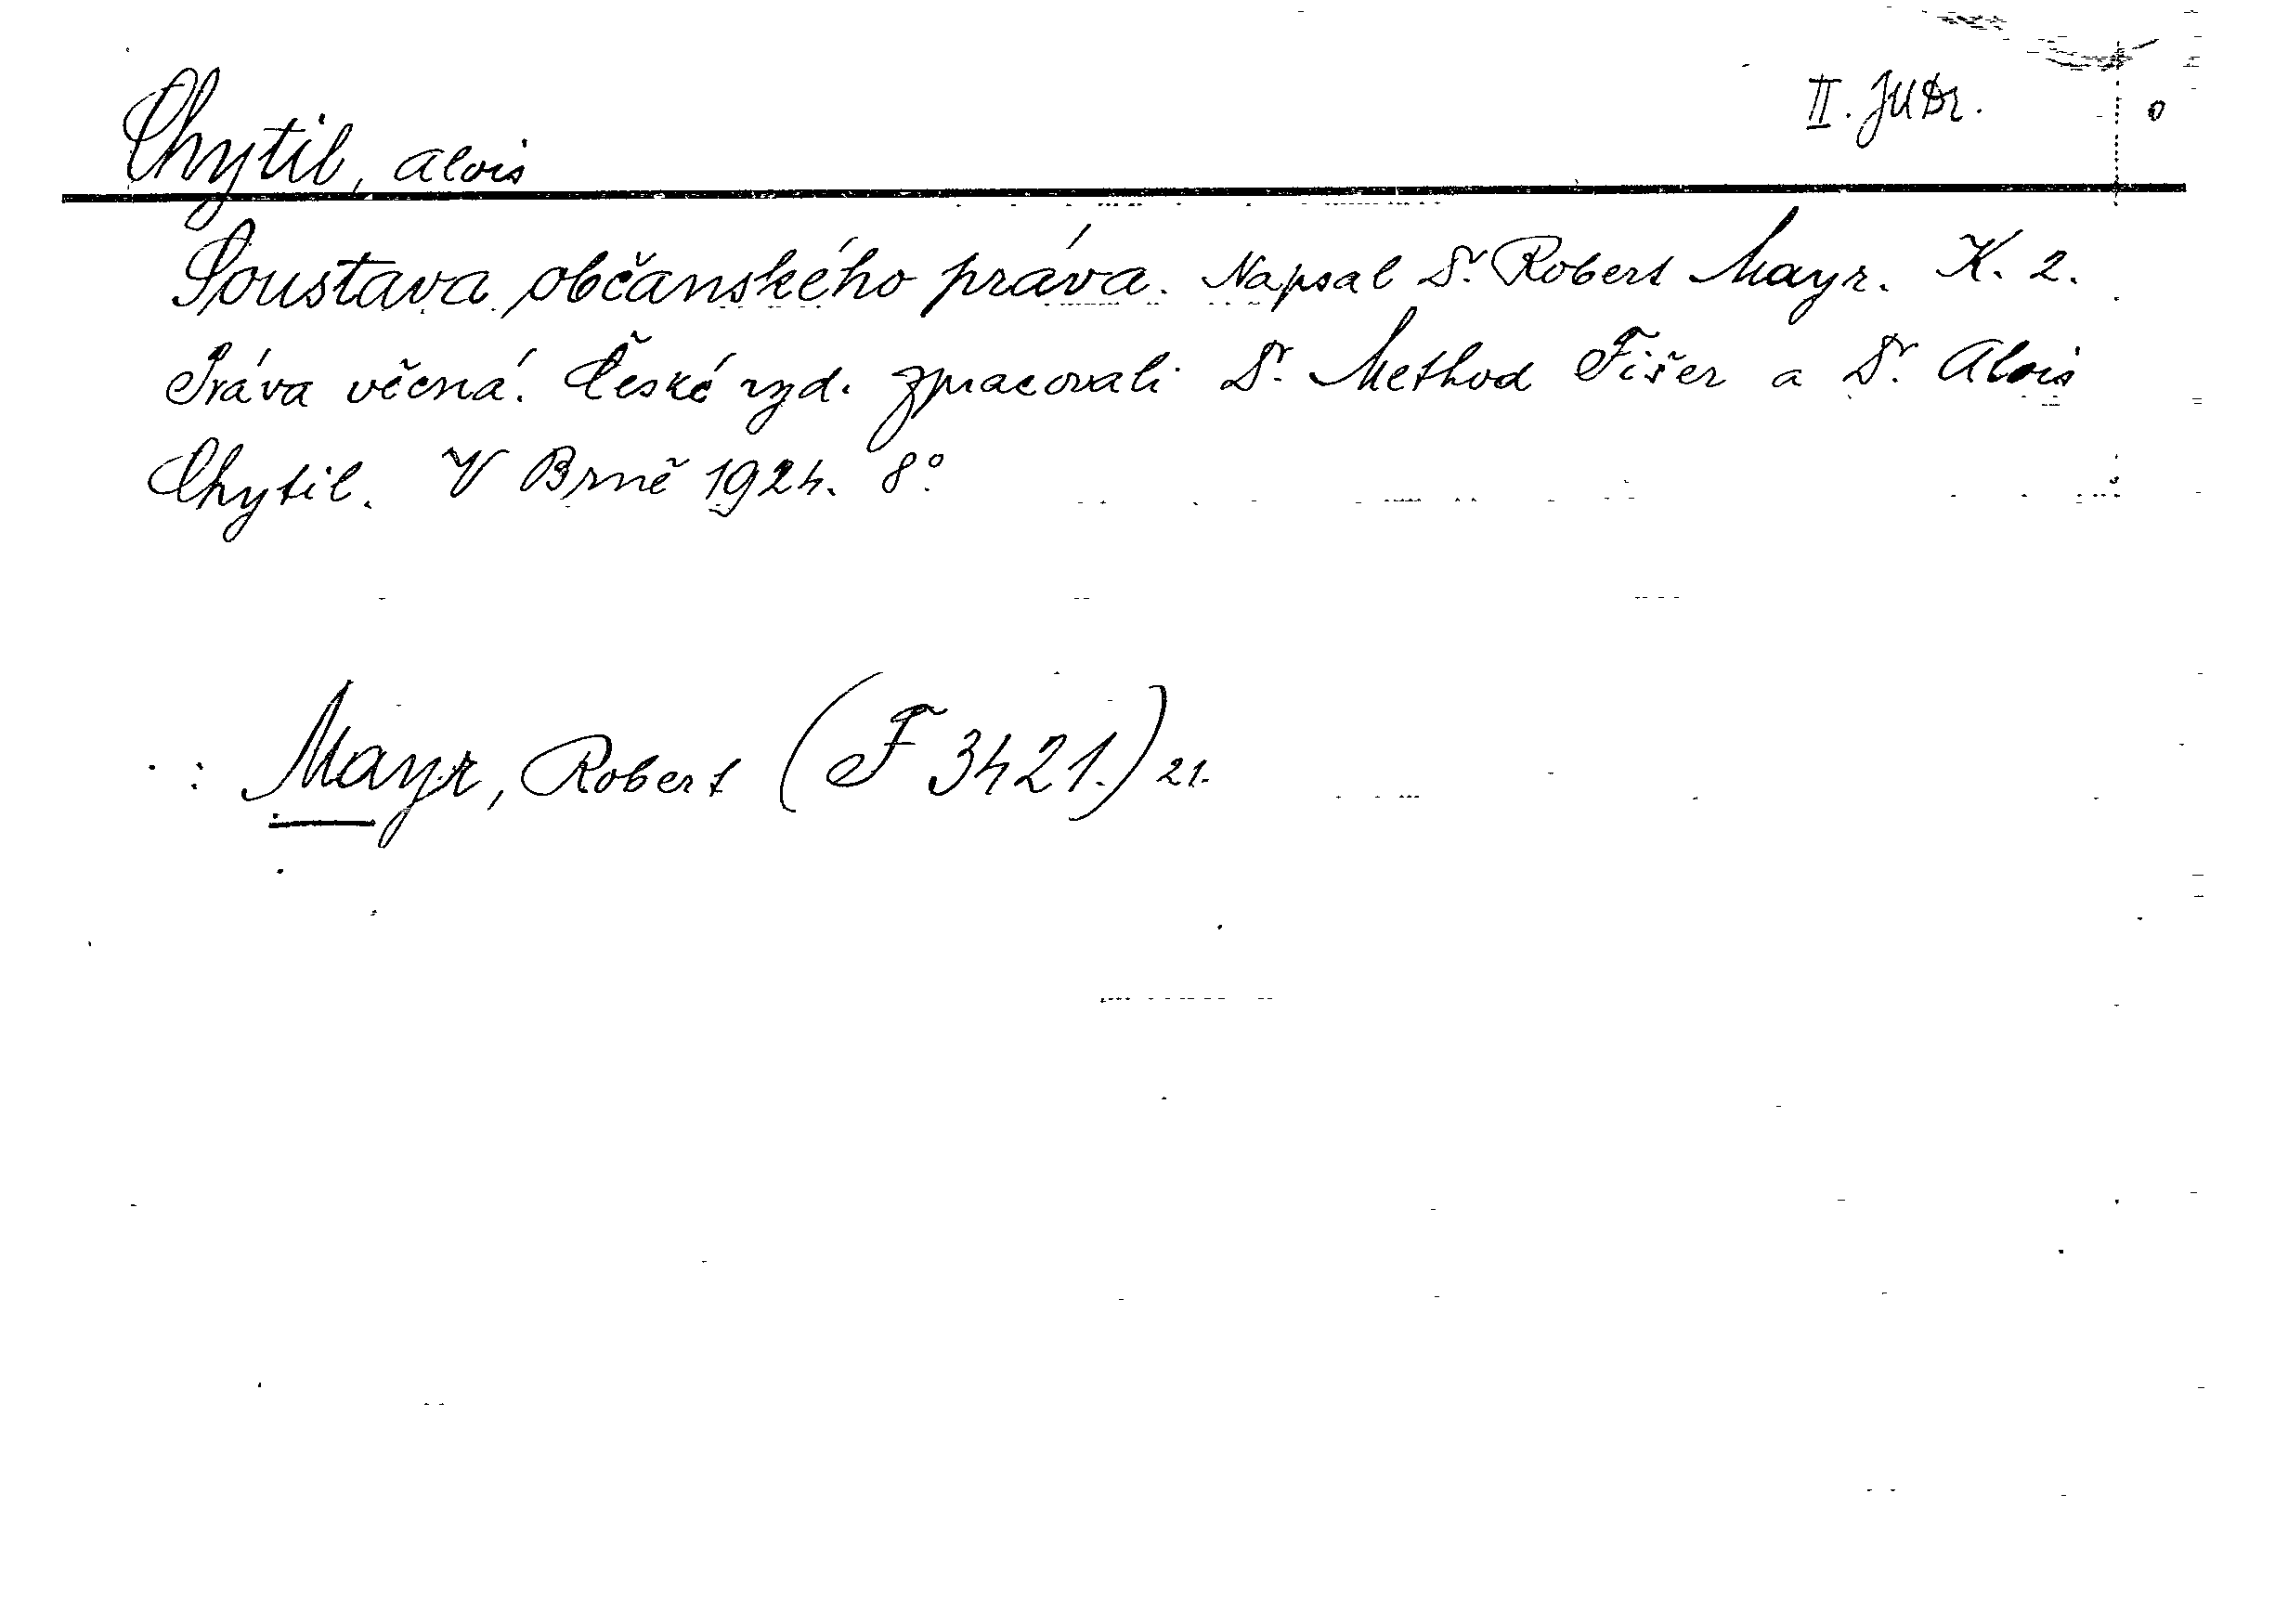 II. JUDr.
Chytil, Alois
Soustava občanského práva. Napsal Dr. Robert Mayr. K. 2.
Práva věcná. České vyd. zpracovali Dr. Method Fišer a Dr. Alois
Chytil. V Brně 1924. 8°.
: Mayr, Robert (F 3421.) 21.